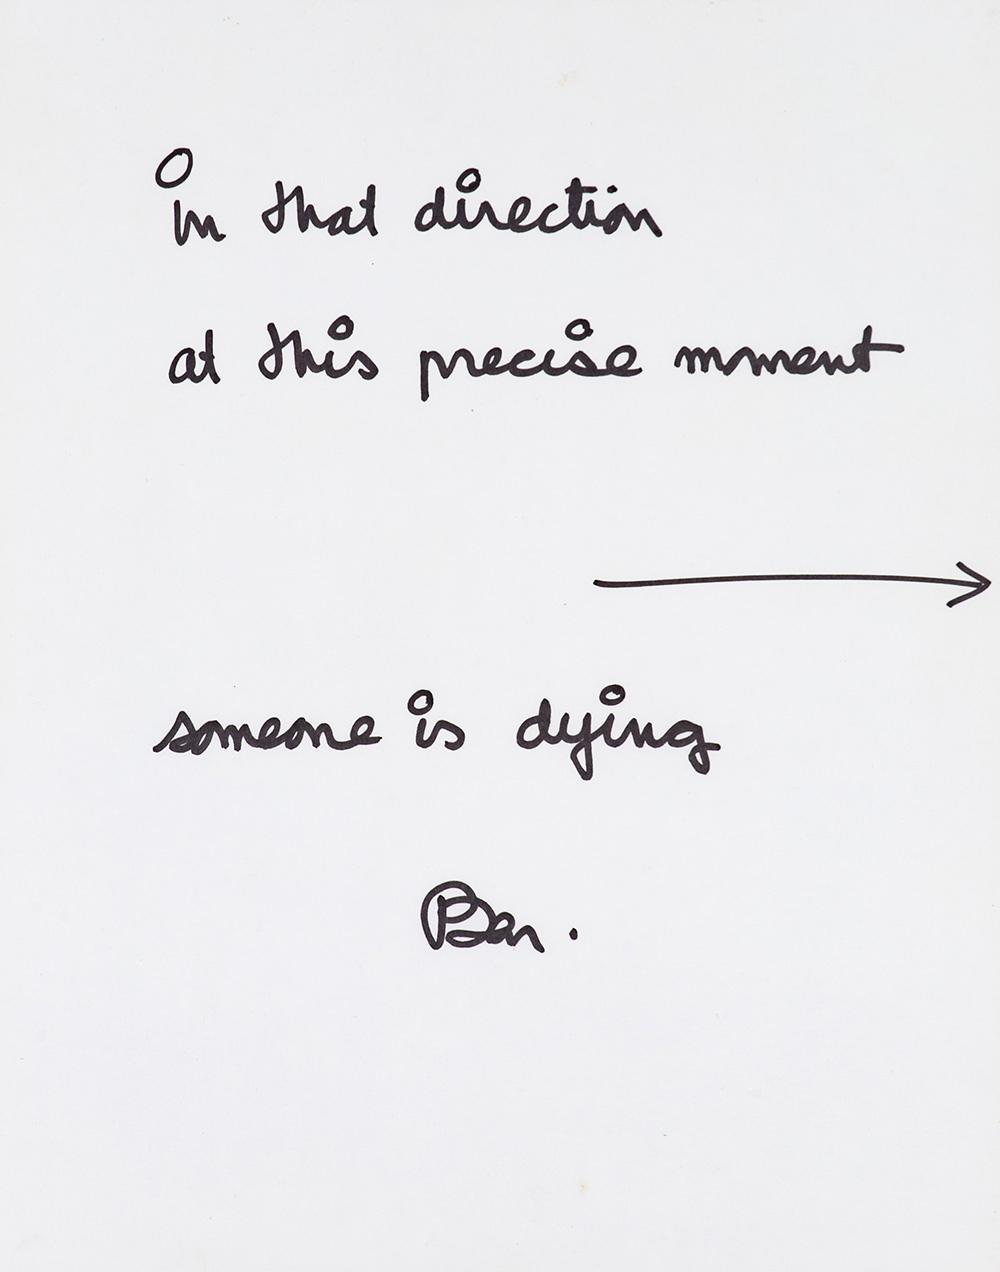 in that direction
at this precise moment
someone is dying
Ben.